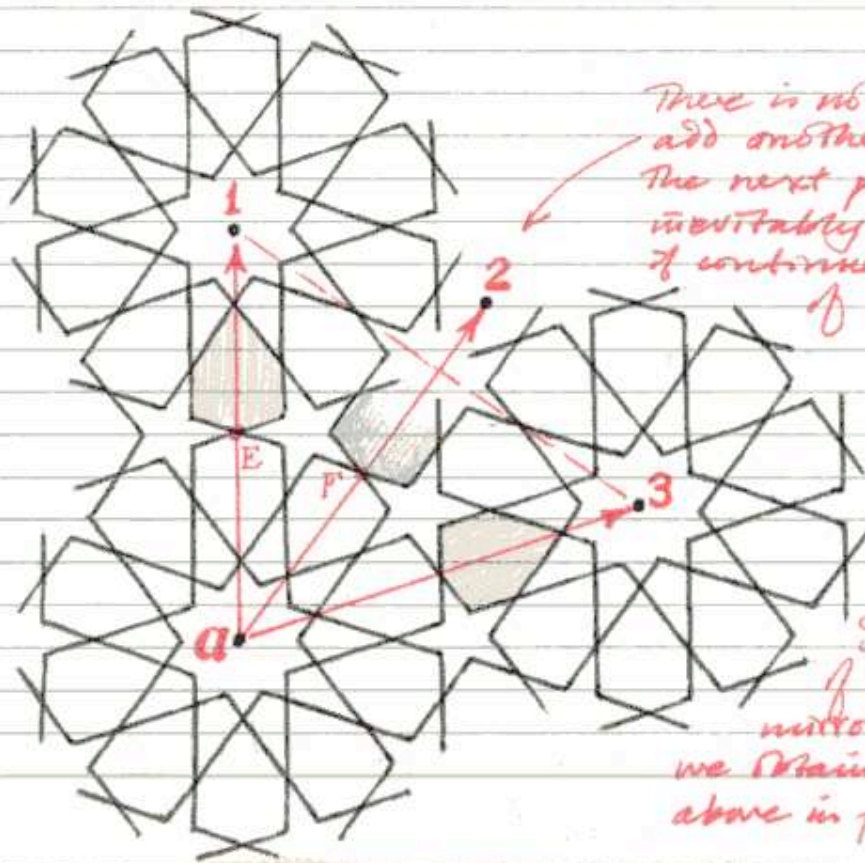 There is no
add another
The next p
inevitably
if continue
of
1
2
E
F'
3
a
S
of
mirro
we obtain
above in p